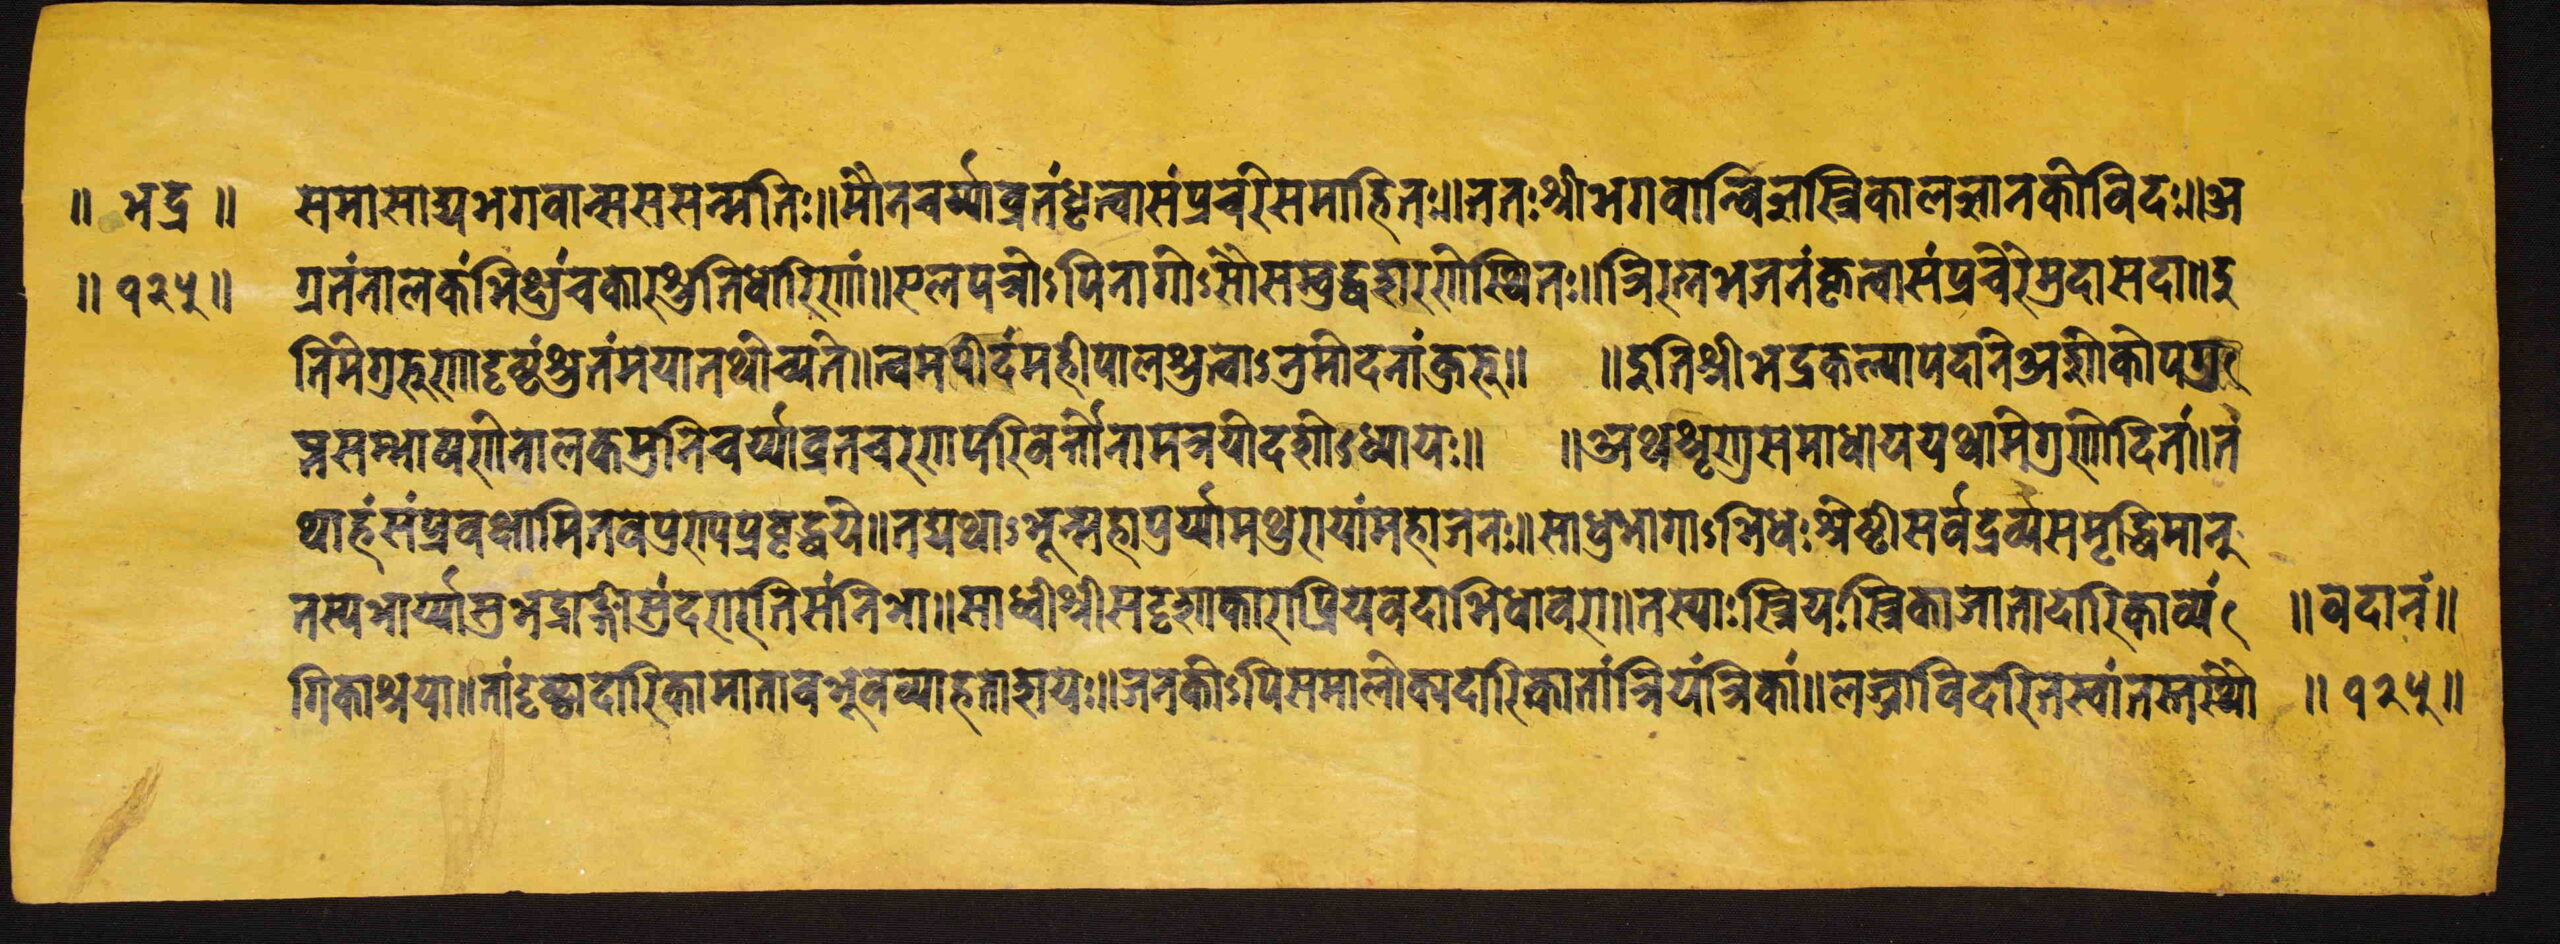 ॥ भद्र ॥ समासाद्यभगवान्सससन्मतिः॥मौनचर्य्याव्रतंधृत्वासंप्रचरेसमाहितः॥ततःश्रीभगवान्विज्ञस्त्रिकालज्ञानकोविदः॥अ
॥१२५॥ ग्रतंनालकंभिक्षुंचकारश्रुतिधारिणां॥एलपत्रोऽपिनागोऽसौसम्बुद्धशरणेस्थितः॥त्रिरत्नभजनंकृत्वासंप्रचेरेमुदासदा॥इ
तिमेगुरुणादृष्टंश्रुतंमयातथोच्यते॥त्वमपीदंमहीपालश्रुत्वाऽनुमोदनांकुरु॥ ॥इतिश्रीभद्रकल्पावदानेअशोकोपगुप्
तसम्भाषणेनालकमुनिचर्य्याव्रतचरणापरिवर्त्तोनामत्रयोदशोऽध्यायः॥ ॥अथशृणुसमाधाययथामेगुरुणोदितं॥त
थाहंसंप्रवक्षामितवपुण्यप्रवृद्धये॥तद्यथाऽभून्महापुर्य्यामथुरायांमहाजनः॥साधुभागाऽभिधःश्रेष्ठीसर्वद्रव्यसमृद्धिमान्
तस्यभार्य्यासुभद्राङ्गीसुंदरारतिसंनिभा॥साध्वीश्रीसदृशाकाराप्रियवदाभिधावरा॥तस्याःस्त्रियःस्त्रिकाजातादारिकाव्यं ॥वदानं॥
गिकाश्रया॥तांदृष्ट्वादारिकामातावभूवव्याहताशयः॥जनकोऽपिसमालोक्यदारिकातांत्रियंत्रिकां॥लज्जाविदारितस्वांतस्तस्थौ ॥१२५॥